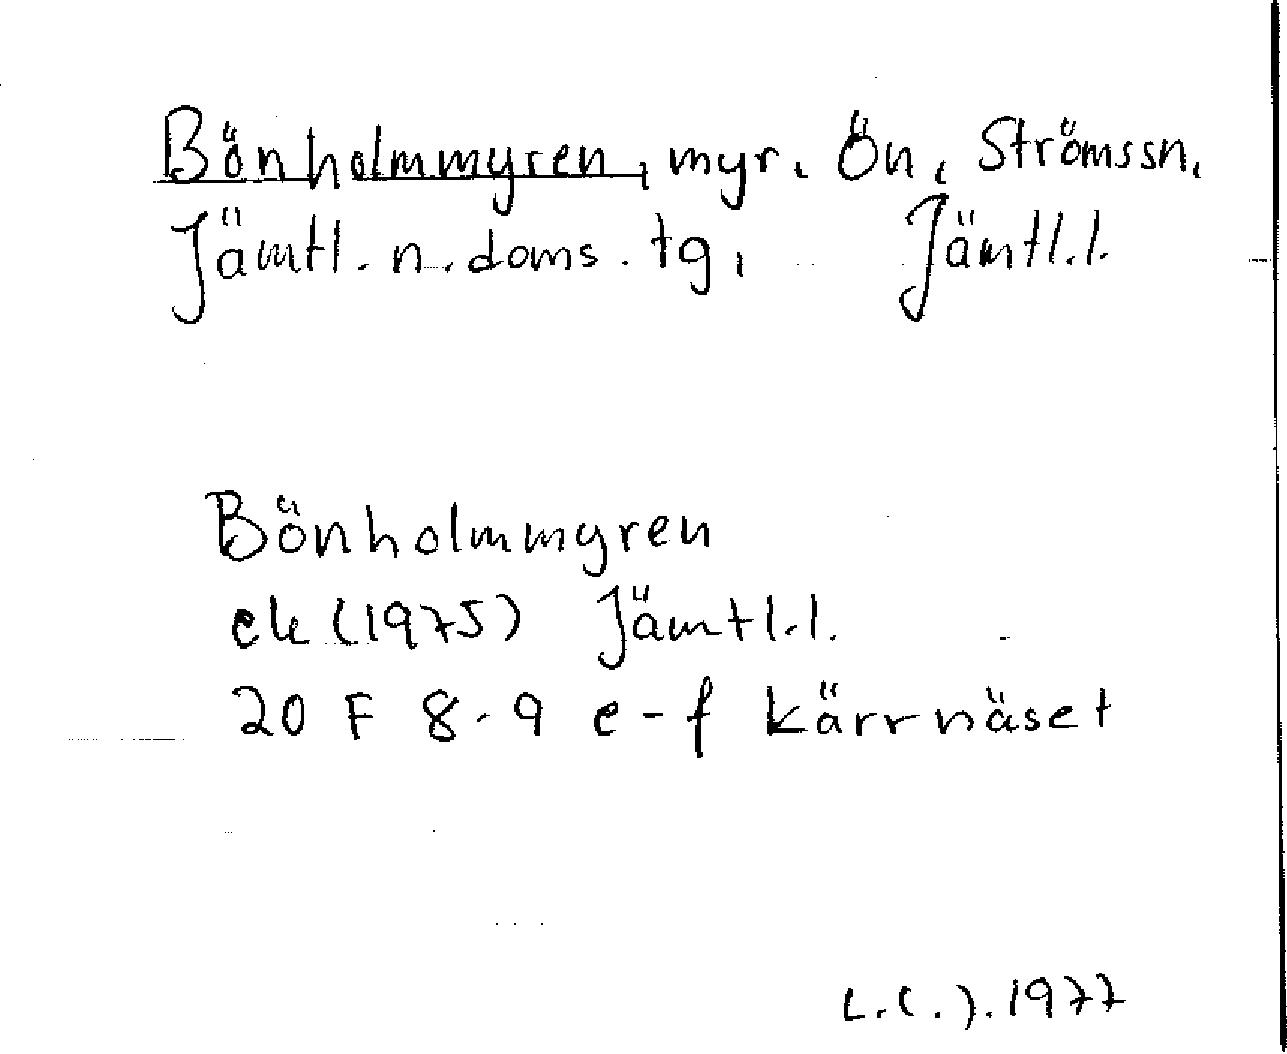 Bönholmmyren, myr, Ön, Strömssn,
Jämtl. n. doms. tg, Jämtl.l.
Bönholmmyren
ek (1975) Jämtl.l.
20 F 8-9 e-f Kärrnäset
L.C.J. 1977